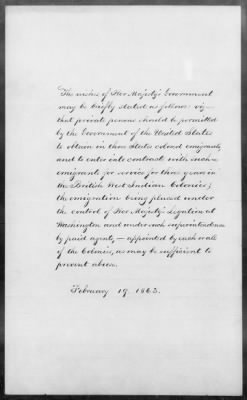 The wishes of Her Majesty's Government
may be briefly stated as follows: viz—
that private persons should be permitted
by the Government of the United States
to obtain in those States colored emigrants
and to enter into contracts with such
emigrants for service for three years in
the British West Indian Colonies;
the emigration being placed under
the control of Her Majesty's Legation at
Washington and under such superintendence
by paid agents,— appointed by each or all
of the Colonies, as may be sufficient to
prevent abuse.
February 19. 1863.